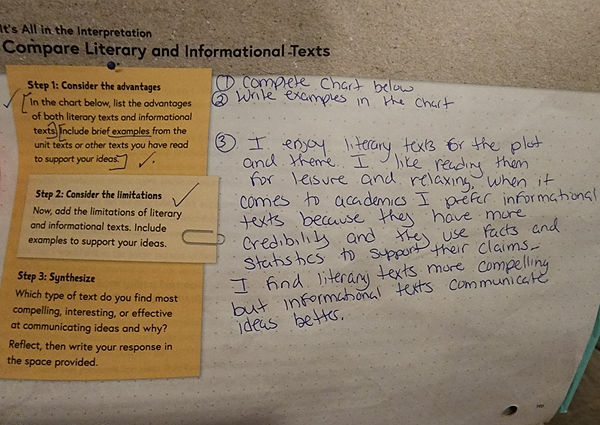 It's All in the Interpretation
Compare Literary and Informational Texts
Step 1: Consider the advantages
In the chart below, list the advantages
of both literary texts and informational
texts. Include brief examples from the
unit texts or other texts you have read
to support your ideas.
Step 2: Consider the limitations
Now, add the limitations of literary
and informational texts. Include
examples to support your ideas.
Step 3: Synthesize
Which type of text do you find most
compelling, interesting, or effective
at communicating ideas and why?
Reflect, then write your response in
the space provided.
① Complete Chart below
② Write examples in the chart
③ I enjoy literary texts for the plot
and theme. I like reading them
for leisure and relaxing, when it
comes to academics I prefer informational
texts because they have more
credibility and they use facts and
statistics to support their claims.
I find literary texts more compelling
but informational texts communicate
ideas better.